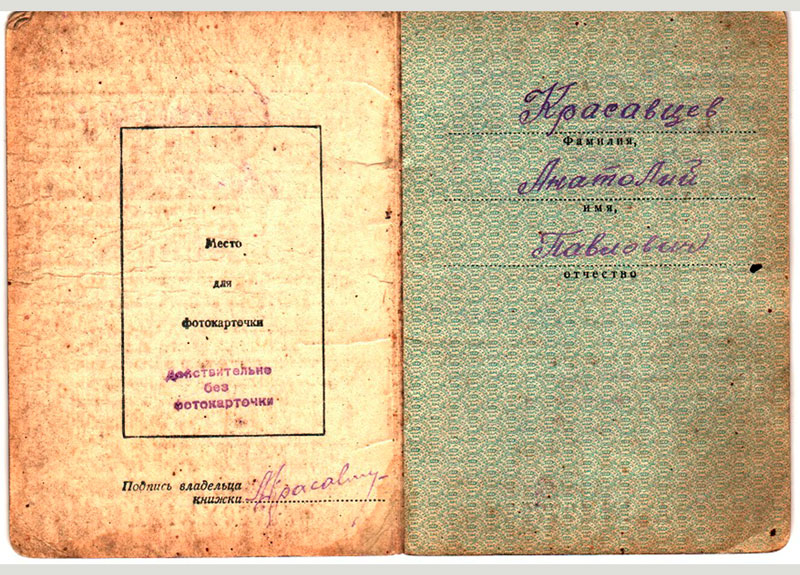 Место
для
фотокарточки
Действительно
без
фотокарточки
Подпись владельца
книжки
Красавцев
Фамилия,
Анатолий
имя,
Павлович
отчество